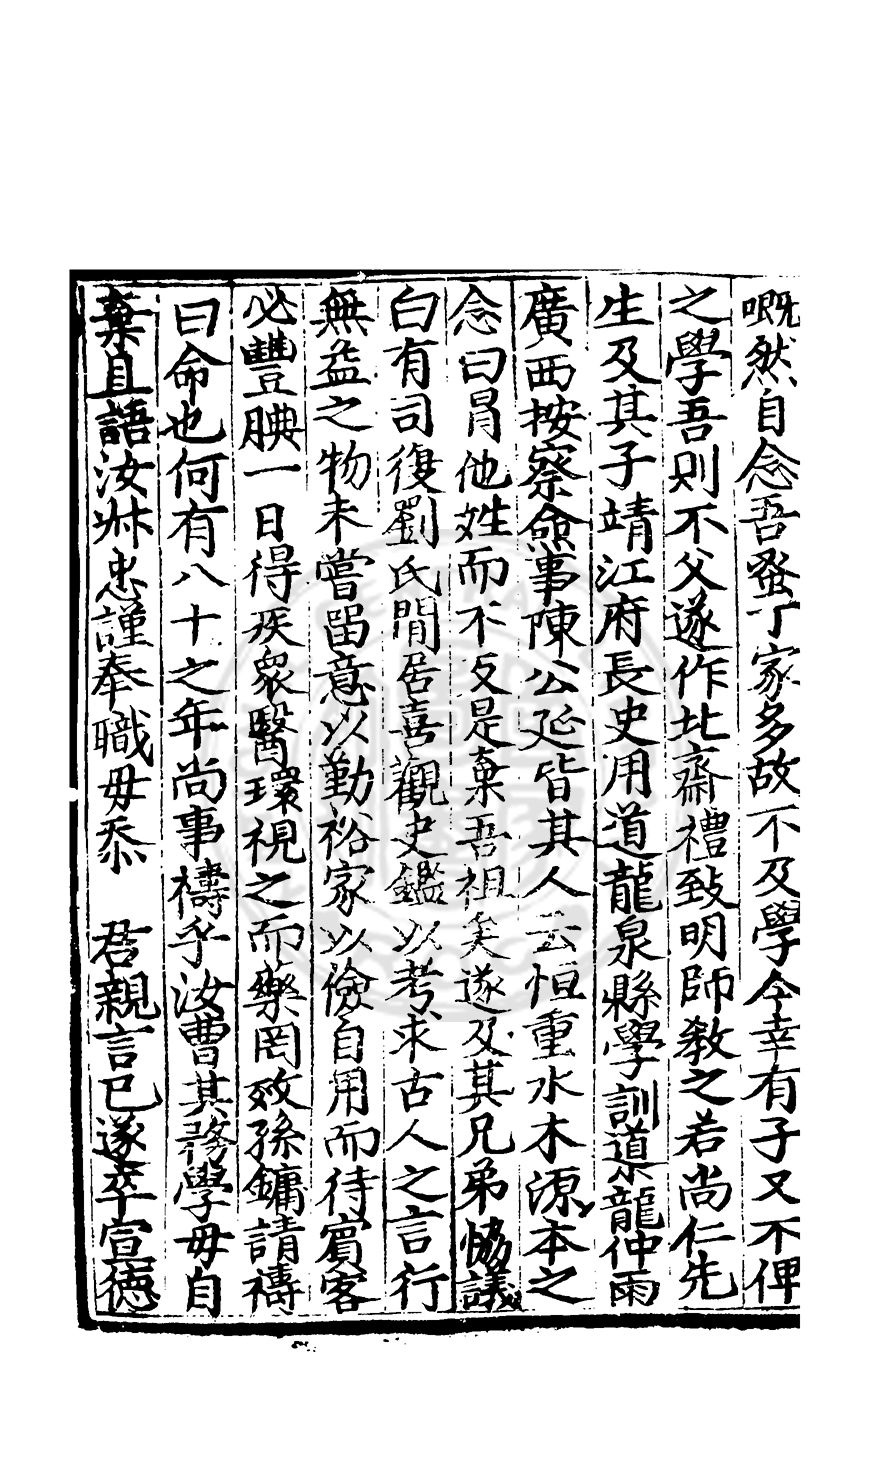 嘅然自念吾蚤丁家多故不及學今幸有子又不俾
之學吾則不父遂作北齋禮致明師教之若尚仁先
生及其子靖江府長史用道龍泉縣學訓道龍仲雨
廣西按察僉事陳公延皆其人云恒重水木源本之
念曰冐他姓而不反是棄吾祖矣遂及其兄弟恊議
白有司復劉氏閒居喜觀史鑑以考求古人之言行
無益之物未嘗留意以勤裕家以儉自用而待賓客
必豐腆一日得疾衆醫環視之而藥罔效孫鏞請禱
曰命也何有八十之年尚事禱乎汝曹其務學毋自
棄且語汝牀忠謹奉職毋忝 君親言已遂卒宣德